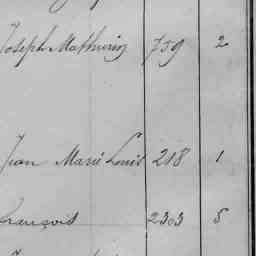 Joseph Mathurin 759 2
Jean Marie Louis 218 1
François 2303 5